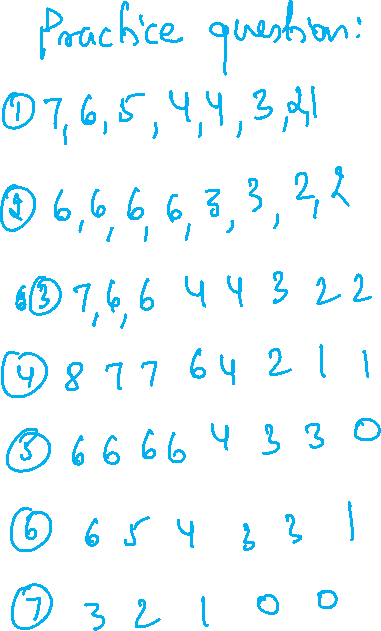 Practice question:
① 7, 6, 5, 4, 4, 3, 2, 1
② 6, 6, 6, 6, 3, 3, 2, 2
③ 7, 6, 6 4 4 3 2 2
④ 8 7 7 6 4 2 1 1
⑤ 6 6 6 6 4 3 3 0
⑥ 6 5 4 3 3 1
⑦ 3 2 1 0 0